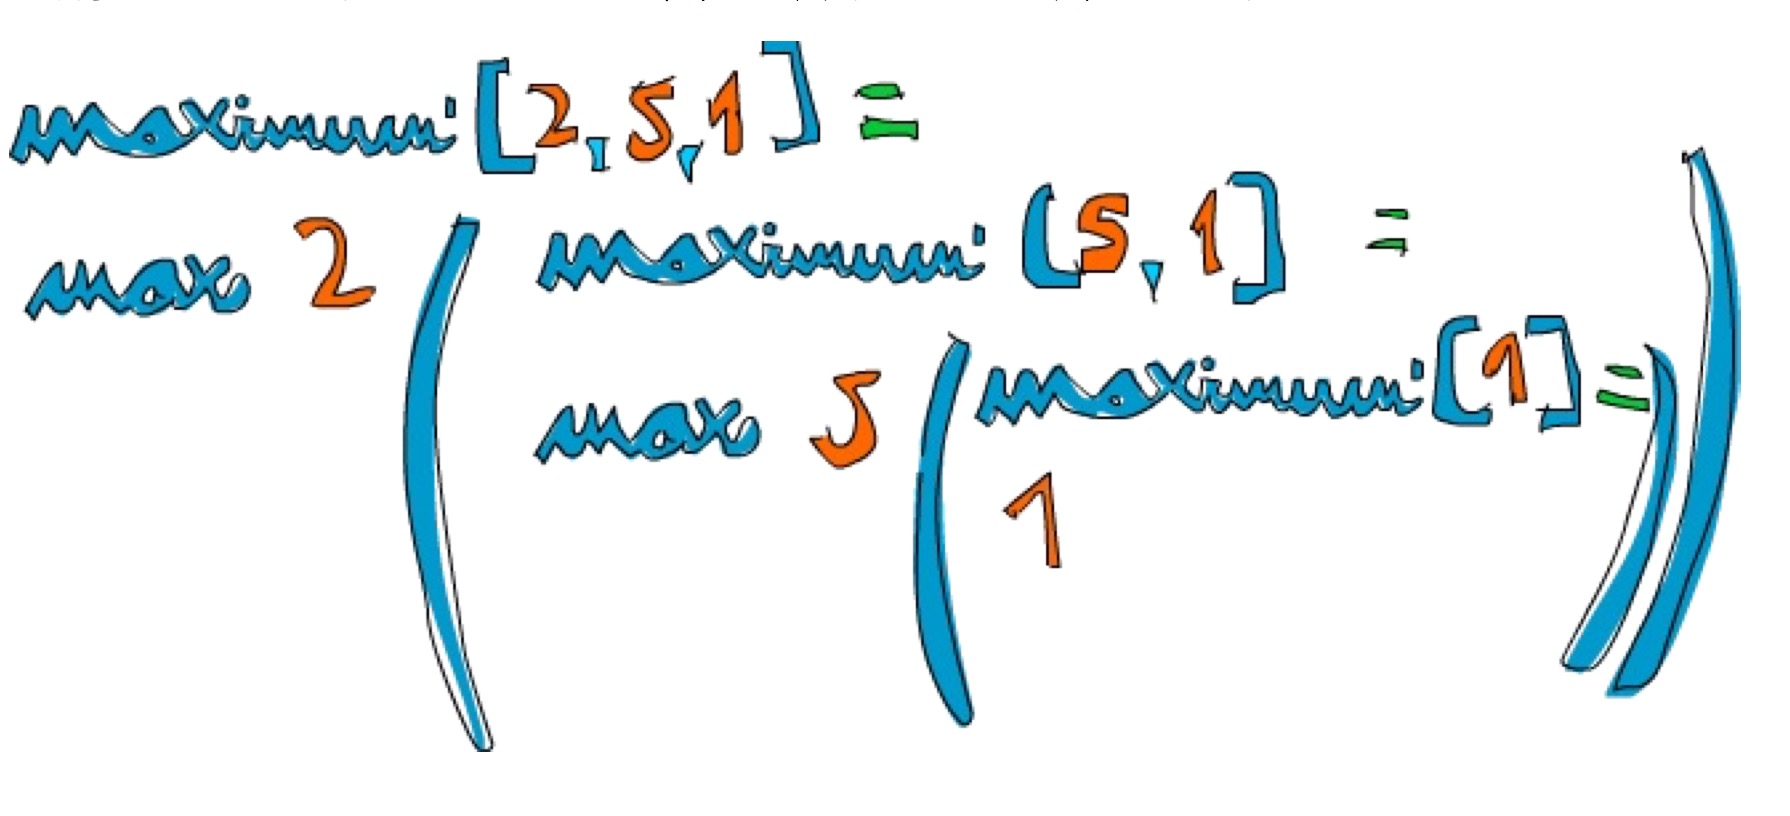 maximum' [2,5,1] =
max 2 ( maximum' [5,1] =
max 5 ( maximum' [1] =
1 ))